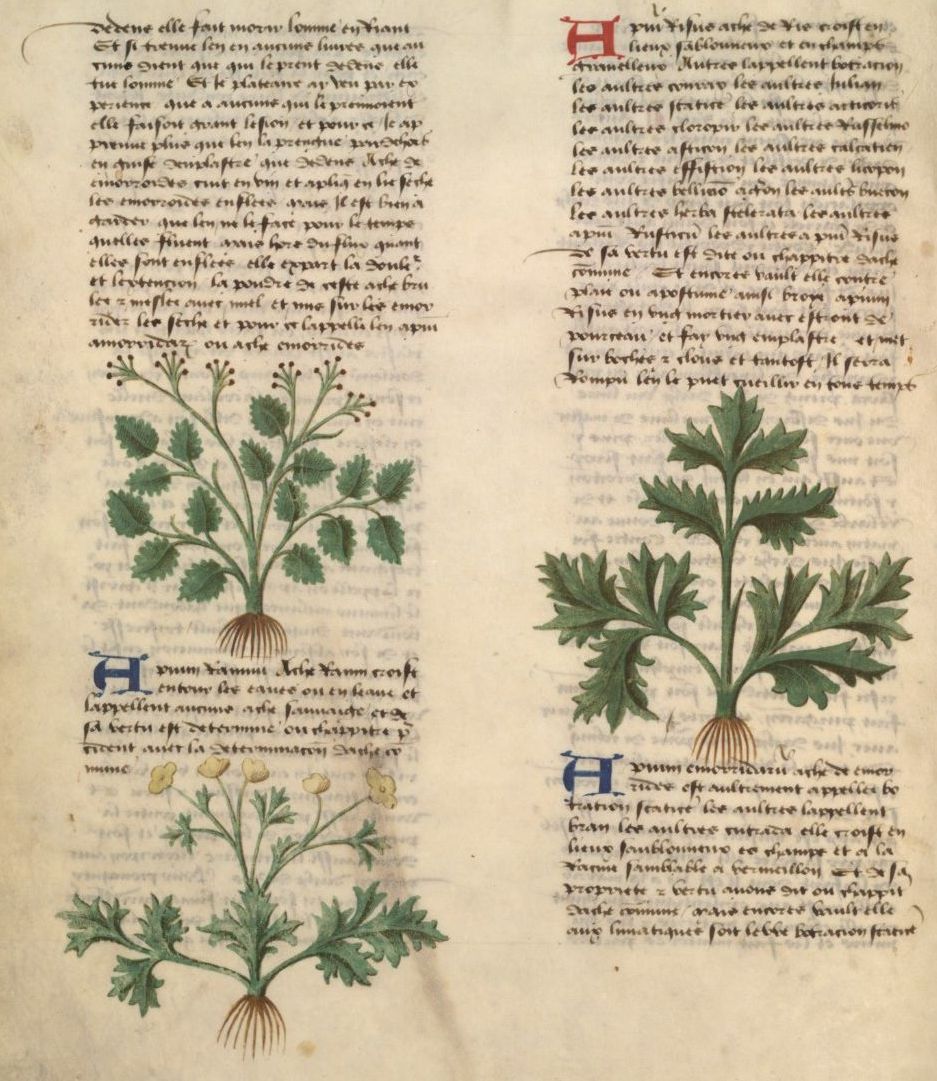 dedens elle fait morir lomme en Riant
Et si treuve len en aucuns livres que au
cuns dient que qui le prent dedens elle
tue lomme Et Je plateaire ay veu par ex
perience que a aucuns qui le prennoient
elle faisoit grant lesion et pour ce Je ap
preuve plus que len la prengne par dehors
en guise demplastre que dedens Ache de
emorroides cuit en vin et apliq en lie seche
les emorroides enflees mais Il est bien a
garder que len ne le face pour le temps
quelles fluent mais hors du flux quant
elles sont enflees elle expart la doule
et lextencion la poudre de ceste ache bru
lee z meslee avec miel et mis sur les emor
rides les seche et pour ce lappelle len apiu
amorridar ou ache emorrides
Apium Ranniu Ache Ranin croist
entour les eaues ou en leaue et
lappellent aucuns ache sauvaige et de
sa vertu est determine ou chappitre p
cident avec la determinacon dache co
mune
Apiu Risus ache de Ris croist en
lieux sablonneux et en champs
gravelleux Autres lappellent botracion
les aultres les aultres Julian
les aultres statice les aultres
les aultres cloropis les aultres Rasselino
les aultres asticon les aultres calcatien
les aultres effistion les aultres licopon
les aultres les aults
les aultres herba scelerata les aultres
apiu Rusticu les aultres apiu Risus
De sa vertu est dite ou chappitre dache
comune Et encores vault elle contre
plaie ou apostume ainsi broye apium
Risus en ung mortier avec estront de
pourceau et fay ung emplastre et met
sur boches z clous et tantost Il serra
Rompu len le puet cueillir en tous temps
Apium emorridaru ache de emor
rides est aultrement appellee bo
tration statice les aultres lappellent
bran les aultres cutrada elle croist en
lieux sablonneux es champs et a la
Racine samblable a vermeillon Et de sa
propriete z vertu avons dit ou chappit
dache comune mais encores vault elle
aux lunatiques soit levve botracion statice